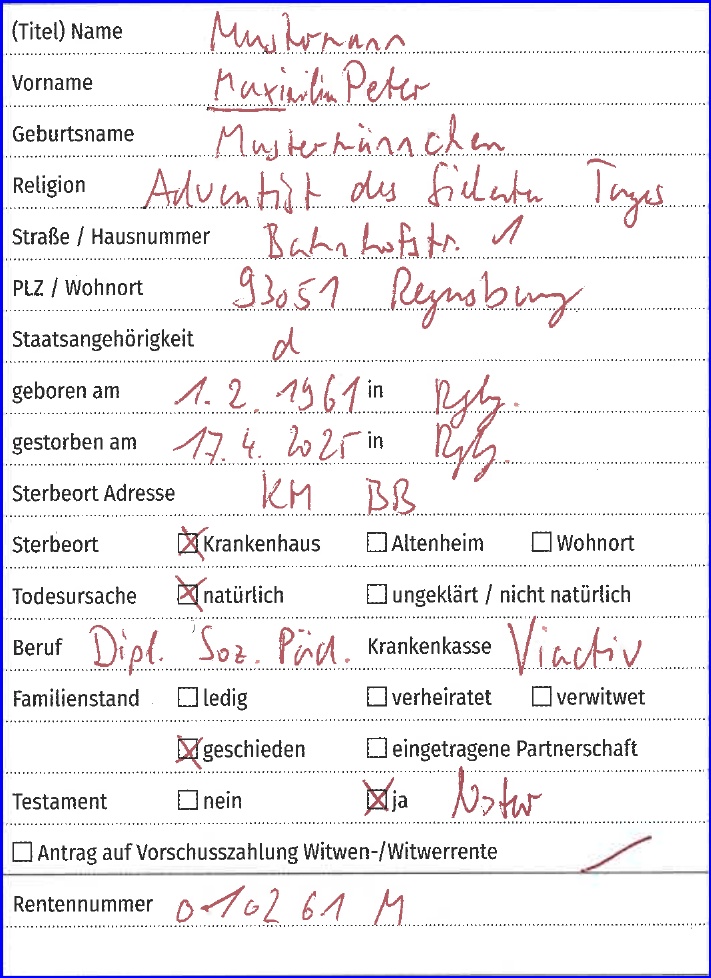 (Titel) Name Mustermann
Vorname Maximilian Peter
Geburtsname Mustermännchen
Religion Adventist des Siebenten Tages
Straße / Hausnummer Bahnhofstr. 1
PLZ / Wohnort 93051 Regensburg
Staatsangehörigkeit d
geboren am 1. 2. 1961 in Rgbg.
gestorben am 17. 4. 2025 in Rgbg.
Sterbeort Adresse KH BB
Sterbeort ☒ Krankenhaus ☐ Altenheim ☐ Wohnort
Todesursache ☒ natürlich ☐ ungeklärt / nicht natürlich
Beruf Dipl. Soz. Päd. Krankenkasse Viactiv
Familienstand ☐ ledig ☐ verheiratet ☐ verwitwet
☒ geschieden ☐ eingetragene Partnerschaft
Testament ☐ nein ☒ ja Notar
☐ Antrag auf Vorschusszahlung Witwen-/Witwerrente
Rentennummer 010261 M